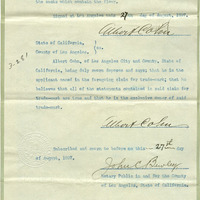 the sacks which contain the flour.
Signed at Los Angeles this 27 day of August, 1897.
Albert Cohn
State of California,
County of Los Angeles. ss.
Albert Cohn, of Los Angeles City and County, State of
California, being duly sworn deposes and says; that he is the
applicant named in the foregoing claim for trade-mark; that he
believes that all of the statements contained in said claim for
trade-mark are true and that he is the exclusive owner of said
trade-mark.
Albert Cohn
Subscribed and sworn to before me this 27th day
of August, 1897.
John C. Bewley
Notary Public in and for the County
of Los Angeles, State of California.